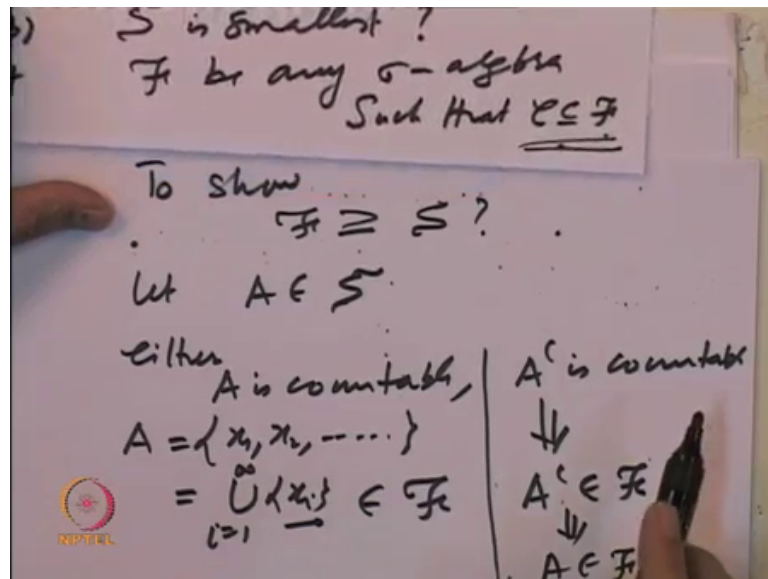 b) S is smallest ?
F be any σ-algebra
Such that C ⊆ F
To show
F ⊇ S ?
Let A ∈ S
either
A is countable,
A = {x₁, x₂, -----}
= ∞∪i=1 {xᵢ} ∈ F
Aᶜ is countable
⇓
Aᶜ ∈ F
⇓
A ∈ F
NPTEL